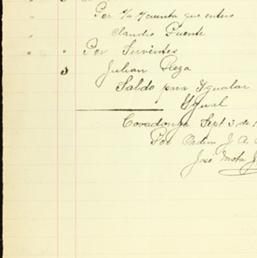 Por Va/ cuenta que entero
Claudio Fuente
" Por Sirvientes
3 Julian Reza
Saldo para Ygualar
Ygual
Covadonga Sept 3 de 1
Por Orden J. A.
José Mota